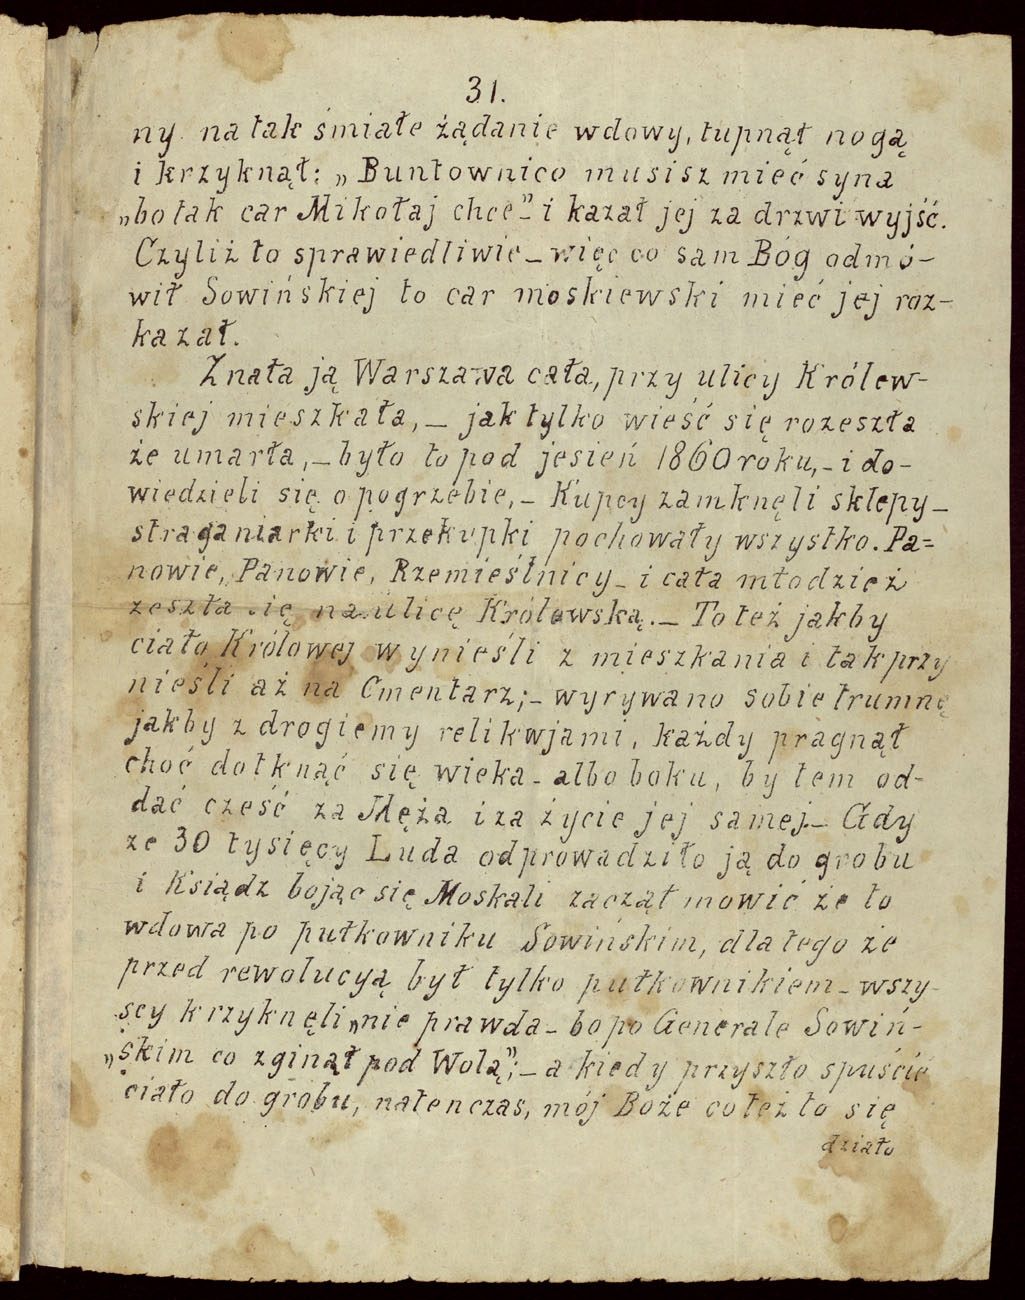 31.
ny na tak śmiałe żądanie wdowy, tupnął nogą
i krzyknął: „Buntownico musisz mieć syna
„bo tak car Mikołaj chce” – i kazał jej za drzwi wyjść.
Czyliż to sprawiedliwie – więc co sam Bóg odmó–
wił Sowińskiej to car moskiewski mieć jej roz–
kazał.
Znała ją Warszawa cała, przy ulicy Królew–
skiej mieszkała, – jak tylko wieść się rozeszła
że umarła, – było to pod jesień 1860 roku, – i do–
wiedzieli się o pogrzebie, – Kupcy zamknęli sklepy –
straganiarki i przekupki pochowały wszystko. Pa=
nowie, Panowie, Rzemieślnicy – i cała młodzież
zeszła się na ulicę Królewską. – To też jakby
ciało Królowej wynieśli z mieszkania i tak przy
nieśli aż na Cmentarz; – wyrywano sobie trumnę
jakby z drogiemy relikwjami, każdy pragnął
choć dotknąć się wieka – albo boku, by tem od–
dać cześć za Męża i za życie jej samej. – Gdy
ze 30 tysięcy Luda odprowadziło ją do grobu
i Ksiądz bojąc się Moskali zaczął mowić że to
wdowa po pułkowniku Sowińskim, dla tego że
przed rewolucyą był tylko pułkownikiem – wszy–
scy krzyknęli „nie prawda – bo po Generale Sowiń–
„skim co zginął pod Wolą”; – a kiedy przyszło spuścić
ciało do grobu, natenczas, mój Boże co też to się
działo